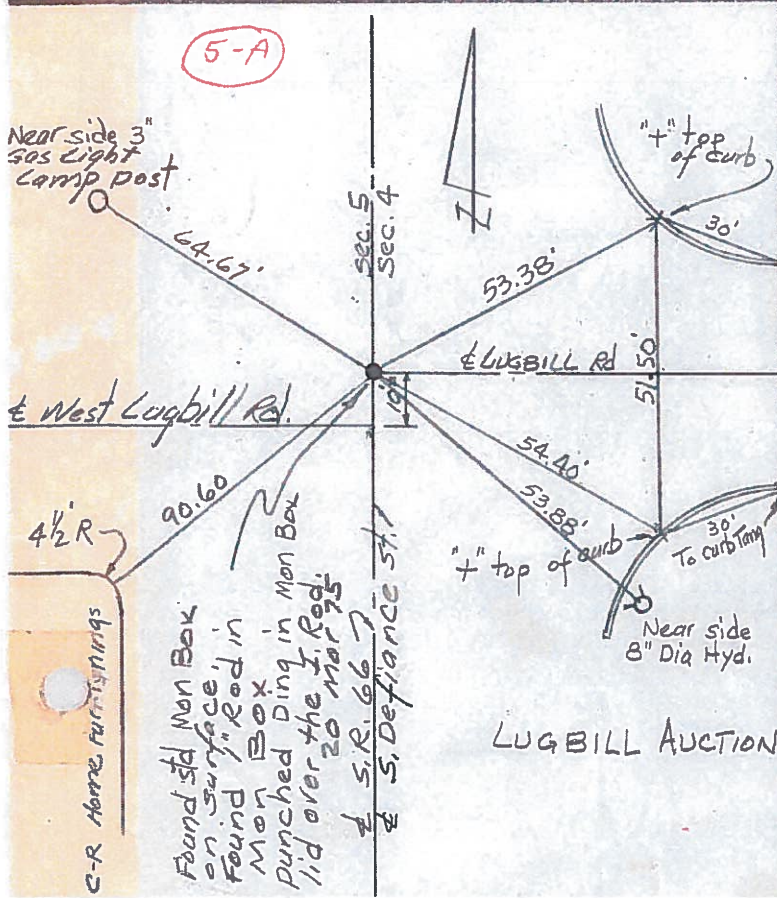 5-A
Near side 3"
Gas Light
Lamp post
64.67'
Sec. 5
Sec. 4
N
"+" top
of curb
30'
53.38'
℄ LUGBILL Rd
51.50'
℄ West Lugbill Rd.
19'
90.60
54.40'
53.88'
4½' R
"+" top of curb
30'
To curb Tang
Near side
8" Dia Hyd.
C-R Home Furnishings
Found std Mon Box
on surface,
Found 1" Rod in
Mon Box
punched Ding in Mon Box
lid over the I. Rod.
20 Mar 75
℄ S.R. 66
℄ S. Defiance St.
LUGBILL AUCTION